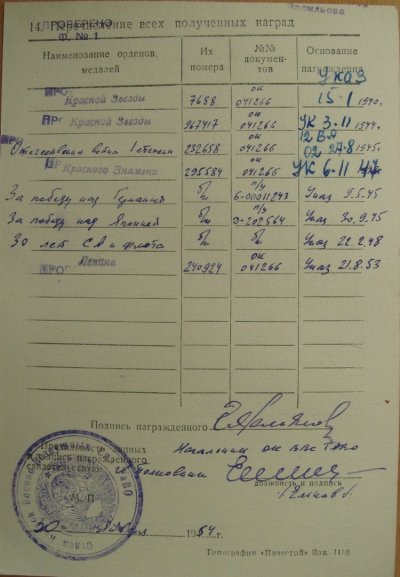 Васильева
ПРОВЕРЕНО
Ф. № 1
14. Перечисление всех полученных наград
Наименование орденов, медалей
Их номера
№№ документов
Основание награждения
Красной Звезды 7688 ОК 041266 УКАЗ 15·1 1940г.
Красной Звезды 967417 ОК 041266 УК 3.11 1944г.
Отечественная война I степени 232658 ОК 041266 12 ВА 02 27-8 1945г.
Красного Знамена 295584 ОК 041266 УК 6.11 47
За победу над Германией б/н п/у Б-00011243 Указ 9.5.45
За победу над Японией б/н п/у Э-202564 Указ 30.9.45
30 лет СА и флота б/н б/н Указ 22.2.48
Ленина 240924 ОК 041266 Указ 21.8.53
Подпись награжденного
Правильность данных
и подпись награжденного
свидетельствую:
Начальник ОК ВВС
полковник
должность и подпись
М. П.
1954 г.
Типография «Известий» Зак. 1140